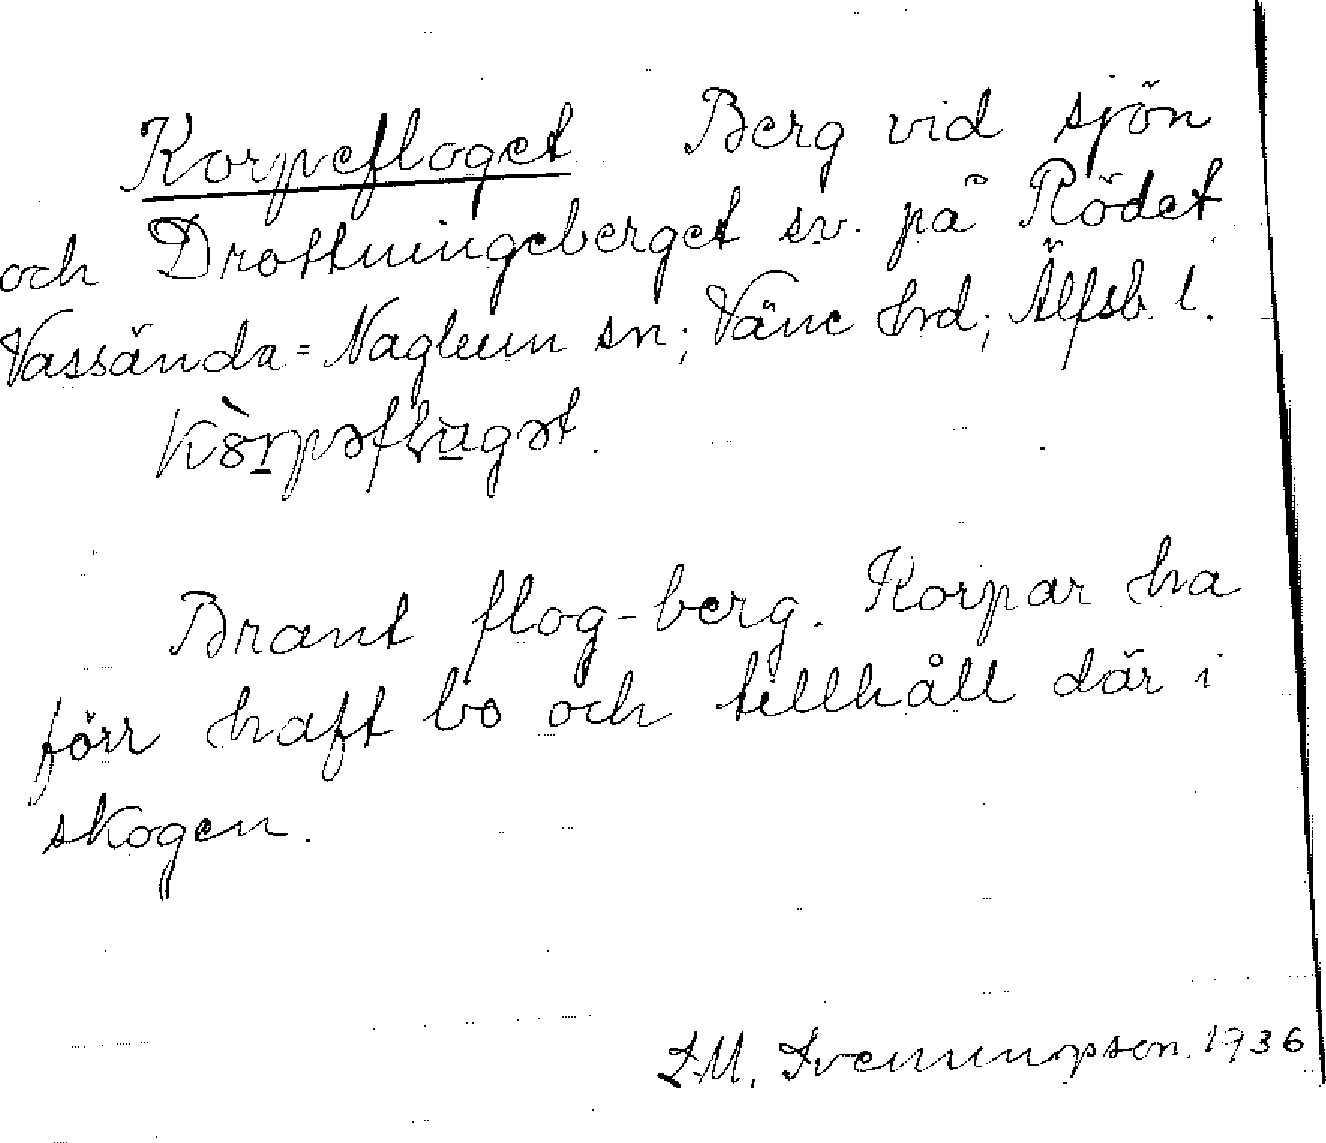 Korpefloget Berg vid sjön
och Drottningeberget sv. på Rödet
Vassända=Naglum sn; Väne hrd; Älfsb. l.
Kòrpəfługət.
Brant flog-berg. Korpar ha
förr haft bo och tillhåll där i
skogen.
Svenningson. 1936